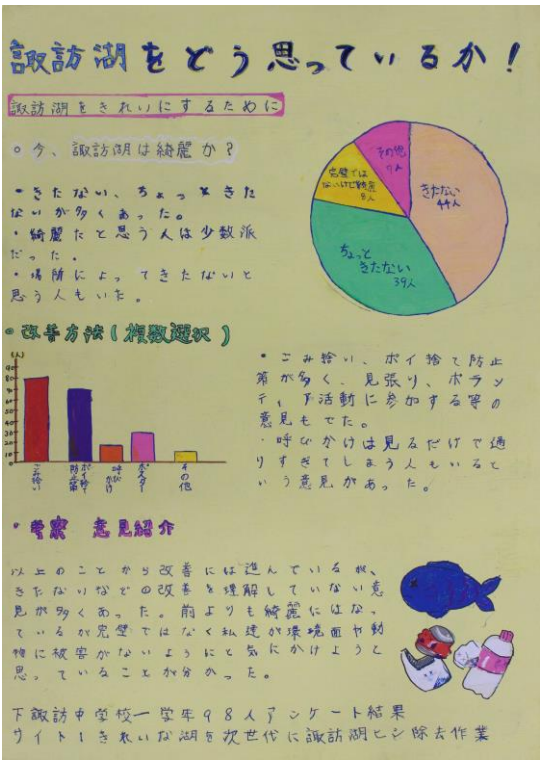 諏訪湖をどう思っているか!
諏訪湖をきれいにするために
○今、諏訪湖は綺麗か?
・きたない、ちょっときた
ないが多くあった。
・綺麗だと思う人は少数派
だった。
・場所によってきたないと
思う人もいた。
きたない
44人
ちょっと
きたない
39人
完璧では
ないけど綺麗
8人
その他
7人
○改善方法(複数選択)
(人)
90
80
70
60
50
40
30
20
10
ごみ拾い
ポイ捨て
防止策
呼び
かけ
ポスター
その他
・ごみ拾い、ポイ捨て防止
策が多く、見張り、ボラン
ティア活動に参加する等の
意見もでた。
・呼びかけは見るだけで通
りすぎてしまう人もいると
いう意見があった。
・考察 意見紹介
以上のことから改善には進んでいるが、
きたないなどの改善を理解していない意
見が多くあった。前よりも綺麗にはなっ
ているが完璧ではなく私達が環境面や動
物に被害がないようにと気にかけようと
思っていることが分かった。
下諏訪中学校一学年98人アンケート結果
サイト1きれいな湖を次世代に諏訪湖ヒシ除去作業